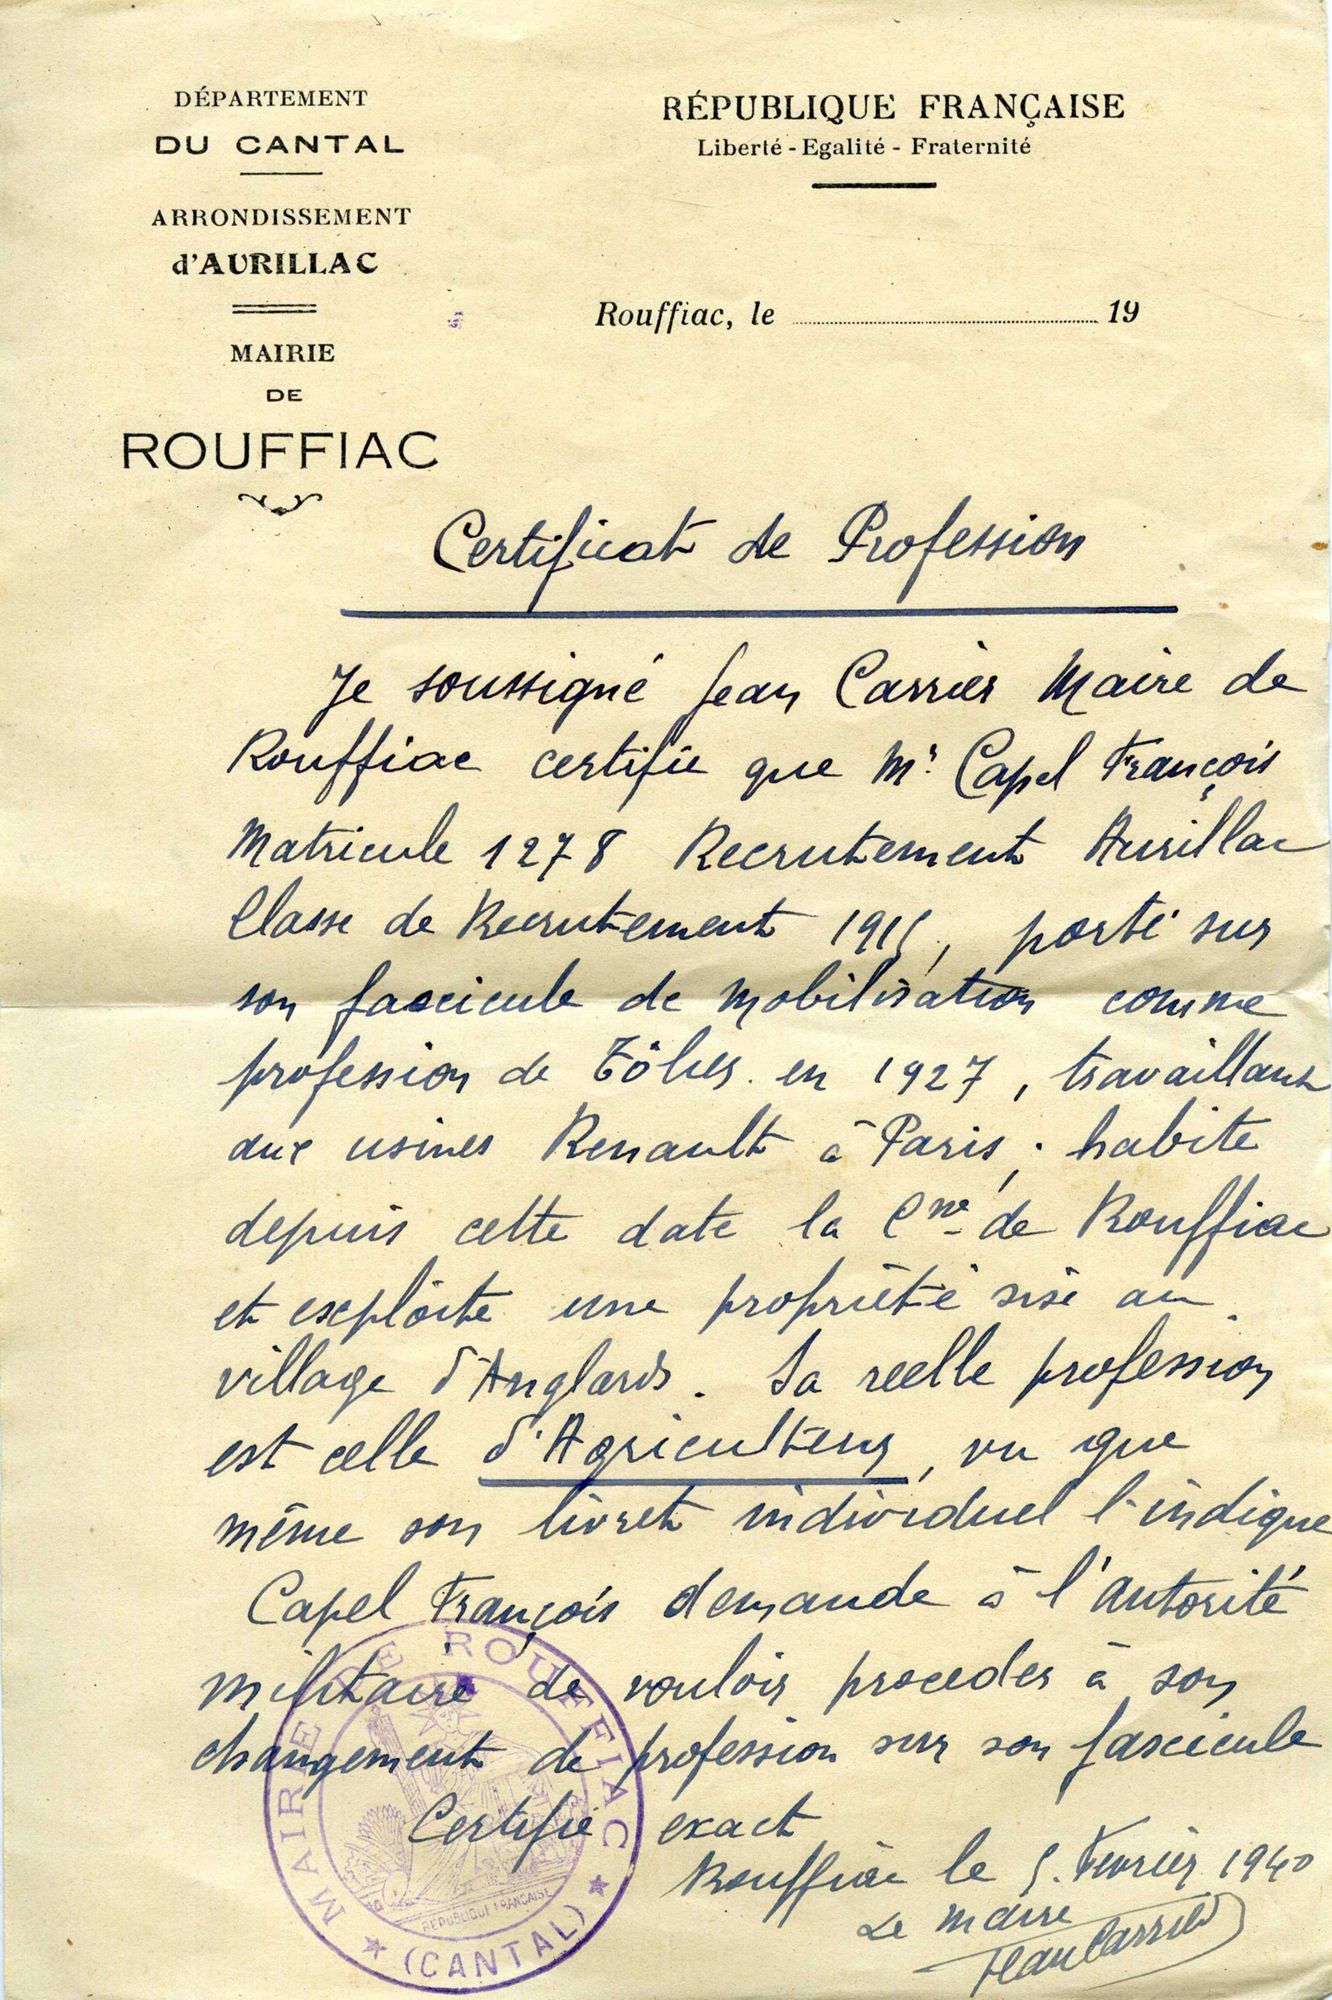 DÉPARTEMENT
DU CANTAL
ARRONDISSEMENT
d'AURILLAC
MAIRIE
DE
ROUFFIAC
RÉPUBLIQUE FRANÇAISE
Liberté - Egalité - Fraternité
Rouffiac, le ........................ 19
Certificat de Profession
Je soussigné Jean Carrier Maire de
Rouffiac certifie que Mr. Capel François
Matricule 1278 Recrutement Aurillac
Classe de Recrutement 1915, porté sur
son fascicule de mobilisation comme
profession de Tôlier. en 1927, travaillant
aux usines Renault à Paris, . habite
depuis cette date la Cne de Rouffiac
et exploite une propriété sise au
village d'Anglards. Sa réelle profession
est celle d'Agriculteur, vu que
même son livret individuel l'indique
Capel François demande à l'autorité
militaire de vouloir procéder à son
changement de profession sur son fascicule
Certifié exact
Rouffiac le 5. Février 1940
Le maire
Jean Carrier
MAIRIE DE ROUFFIAC
RÉPUBLIQUE FRANÇAISE
★ (CANTAL) ★